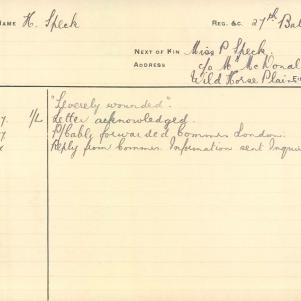 NAME H. Speck REG. &C. 27th Bat
NEXT OF KIN Miss P Speck.
ADDRESS c/o Mr McDonal
Wild Horse Plain
"Severely wounded".
1/L Letter acknowledged.
P/Cably forwarded Commrs London.
Reply from Commrs. Information sent Inqui